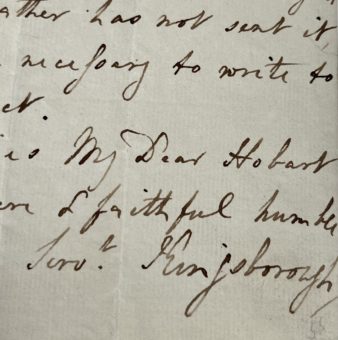 ather has not sent it,
necessary to write to
ct.
is My Dear Hobart
ere & faithful humble
Serv.t Kingsborough